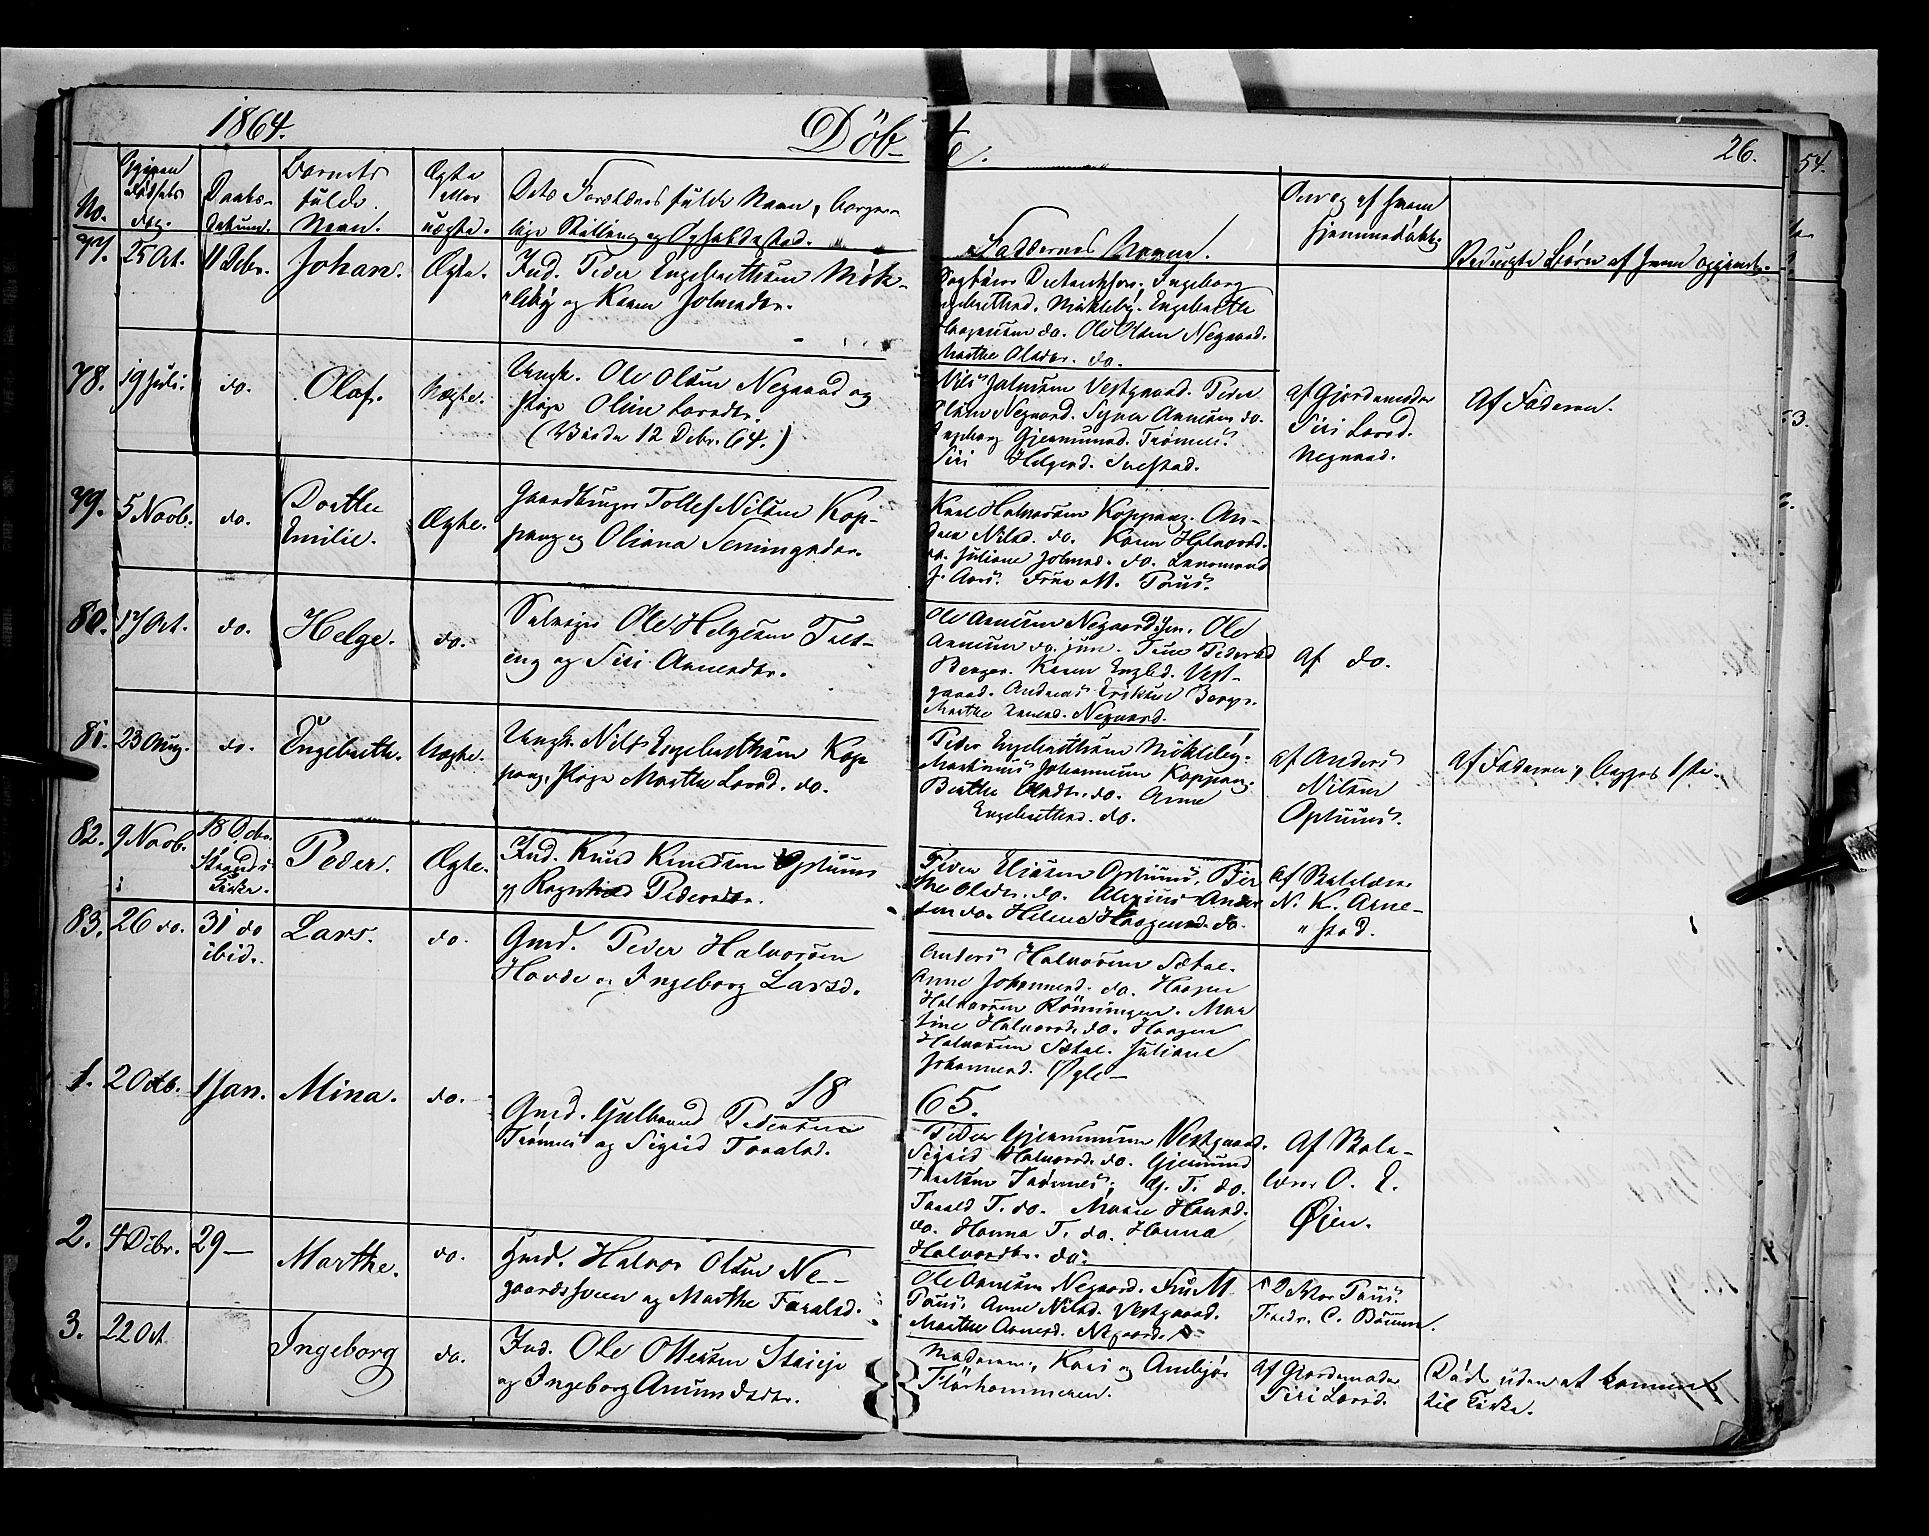 1864.
Döb-
te.
26.
54.
No.
Fødsels
Daabs-
datum.
Barnets
fulde
Navn.
Ægte
eller
uægte.
Dets Forældres fulde Navn, borger-
lige Stilling og Opholdssted.
Faddernes Navne.
hjemmedøbt.
77. 25 Oct. 11 Debr. Johan. Ægte. Ind. Peder Engebrethsen Mök-
leby og Karen Johnsdtr.
Ingeborg
Engebrethsd. Mökleby. Engebreth
do. Ole Olsen Negaard.
Marthe Olsdtr. do.
78. 19 Juli. do. Olaf. Uægte. Ungk. Ole Olsen Negaard og
Pige Oline Larsdtr.
(Viede 12 Debr. 64.)
Nils Johnsen Vestgaard. Peder
Olsen Negaard. Syver Arnesen do.
Ingeborg Gjermunds. Trønnes.
Siri Helgesd.
af Gjordemoder
Siri Larsd.
Negaard.
Af Faderen.
79. 5 Novb. do. Dorthe
Emilie. Ægte. Gaardbruger Tollef Nilsen Kop-
pang og Oliana Semingsdtr.
Karl Halvorsen Koppang. An-
drea Nilsd. do. Karen Halvorsd.
do. Juliane Johnsd. do. Lensmand
J. Aars. Frue M.
80. 17 Oct. do. Helge. do. Selveier Ole Helgesen
og Siri Arnesdtr.
Ole Arnesen Negaard sen. Ole
Arnesen do. jun. Pedersd
Berger. Karen Engebd. Vest-
gaard. Andreas Eriksen Berger.
Marthe Arnesd. Negaard.
af do.
81. 23 Aug. do. Engebreth. Uægte. Ungk. Nils Engebrethsen Kop
pang, Pige Marthe Larsd. do.
Peder Engebrethsen Mökleby.
Martinus Johannesen Koppang.
Berthe Olsdtr. do. Anne
Engebrethsd. do.
af Anders
Nilsen
Ophuus.
Af Faderen, begges 1ste.
82. 9 Novb. 18 Debr.
Kirke. Peder. Ægte. Ind. Knud Knudsen Ophuus
og Ragnhild Pedersdtr.
Peder Eliasen Ophuus. Ber
the Olsdtr. do. Alexius Ander
sen do. Helene Haagensd. do.
af Skolelærer
N. K. Arne-
stad.
83. 26 do. 31 do
ibid. Lars. do. Gmd. Peder Halvorsen
Hovde og Ingeborg Larsd.
Anders Halvorsen Sætal.
Anne Johannesd. do. Haagen
Halvorsen Rönningen. Mar
tine Halvorsd. do. Haagen
Halvorsen Sætal. Juliane
Johannesd. Øgle—
18
65.
1. 2 Octb. 1 Jan. Mina. do. Gmd. Gulbrand Pedersen
Trønnes og Sigrid Taralsd.
Peder Gjermunsen Vestgaard.
Sigrid Halvorsd. do. Gjermund
Trønnes. G. T. do.
Tarald T. do. Marie
do. Hanna T. do. Hanna
Halvorsdtr. do.
Af Skole-
lærer O. E.
Øien.
2. 4 Debr. 29— Marthe. do. Gmd. Halvor Olsen Ne-
gaardshuen og Marthe Taralsd.
Ole Arnesen Negaard. Fru M.
Anne Nilsd. Vestgaard.
Marthe Arnesd. Negaard.
3. 22 Oct. Ingeborg do. Ind. Ole Ottersen Staieje
og Ingeborg Amundsdtr.
Moderen, Kari og Anbjør
Flörhommeren.
af Gjordemoder
Siri Larsd.
Döde uden at komme
til Kirke.